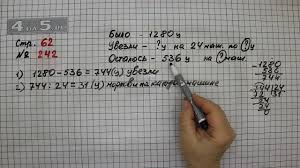 4 за 5
Стр. 62
№ 242
Было - 1280ц
Увезли - ?ц на 24 маш. по ?ц
Осталось - 536ц на ? маш.
1) 1280-536 = 744(ц) увезли
2) 744 : 24 = 31 (ц) моркови на каждой машине
-1280
536
744
744|24
72 31
24
24
0